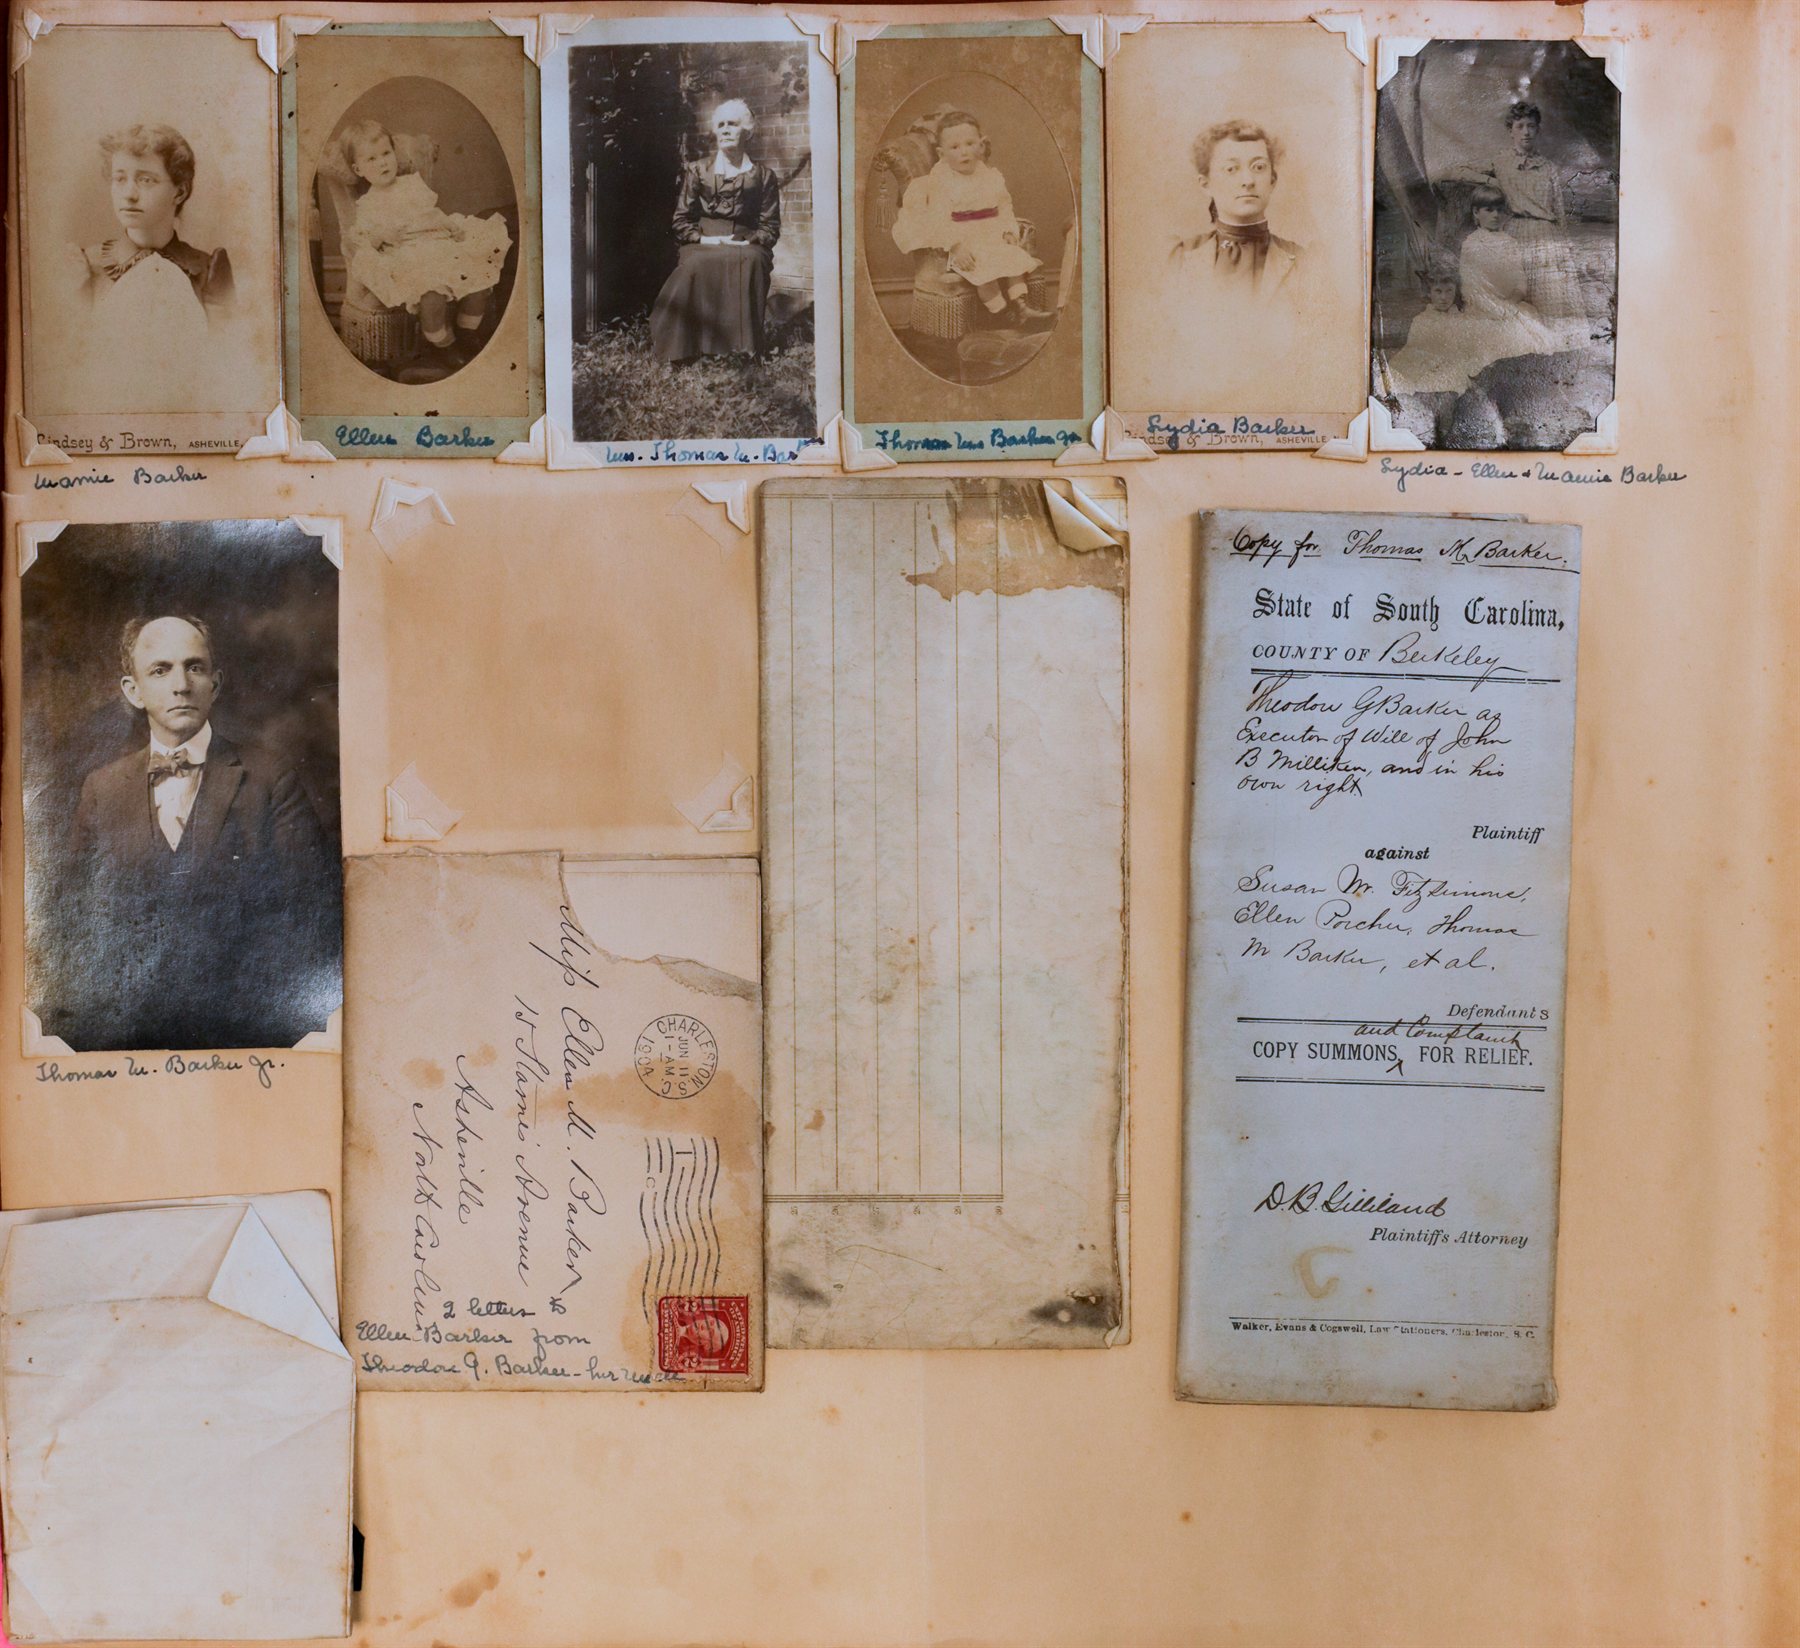 Lindsey & Brown, ASHEVILLE,
Mamie Barker
Ellen Barker
Mrs. Thomas M. Bar
Thomas M Barker Jr
Lydia Barker
Lindsey & Brown, ASHEVILLE
Lydia - Ellen & Mamie Barker
Thomas M. Barker Jr.
Miss Ellen M. Barker
15 Starnes Avenue
Asheville
North Carolina
CHARLESTON
JUN 11
1-AM
1904
S.C.
2 letters to
Ellen Barker from
Theodore G. Barker - her uncle
Copy for Thomas M Barker.
State of South Carolina,
COUNTY OF Berkeley
Theodore G Barker as
Executor of Will of John
B Milliken, and in his
own right
Plaintiff
against
Susan M. Fitzsimons,
Ellen Porcher, Thomas
M Barker, et al.
Defendants
and Complaint
COPY SUMMONS, FOR RELIEF.
D.B. Gilliland
Plaintiffs Attorney
Walker, Evans & Cogswell, Law Stationers, Charleston, S. C.